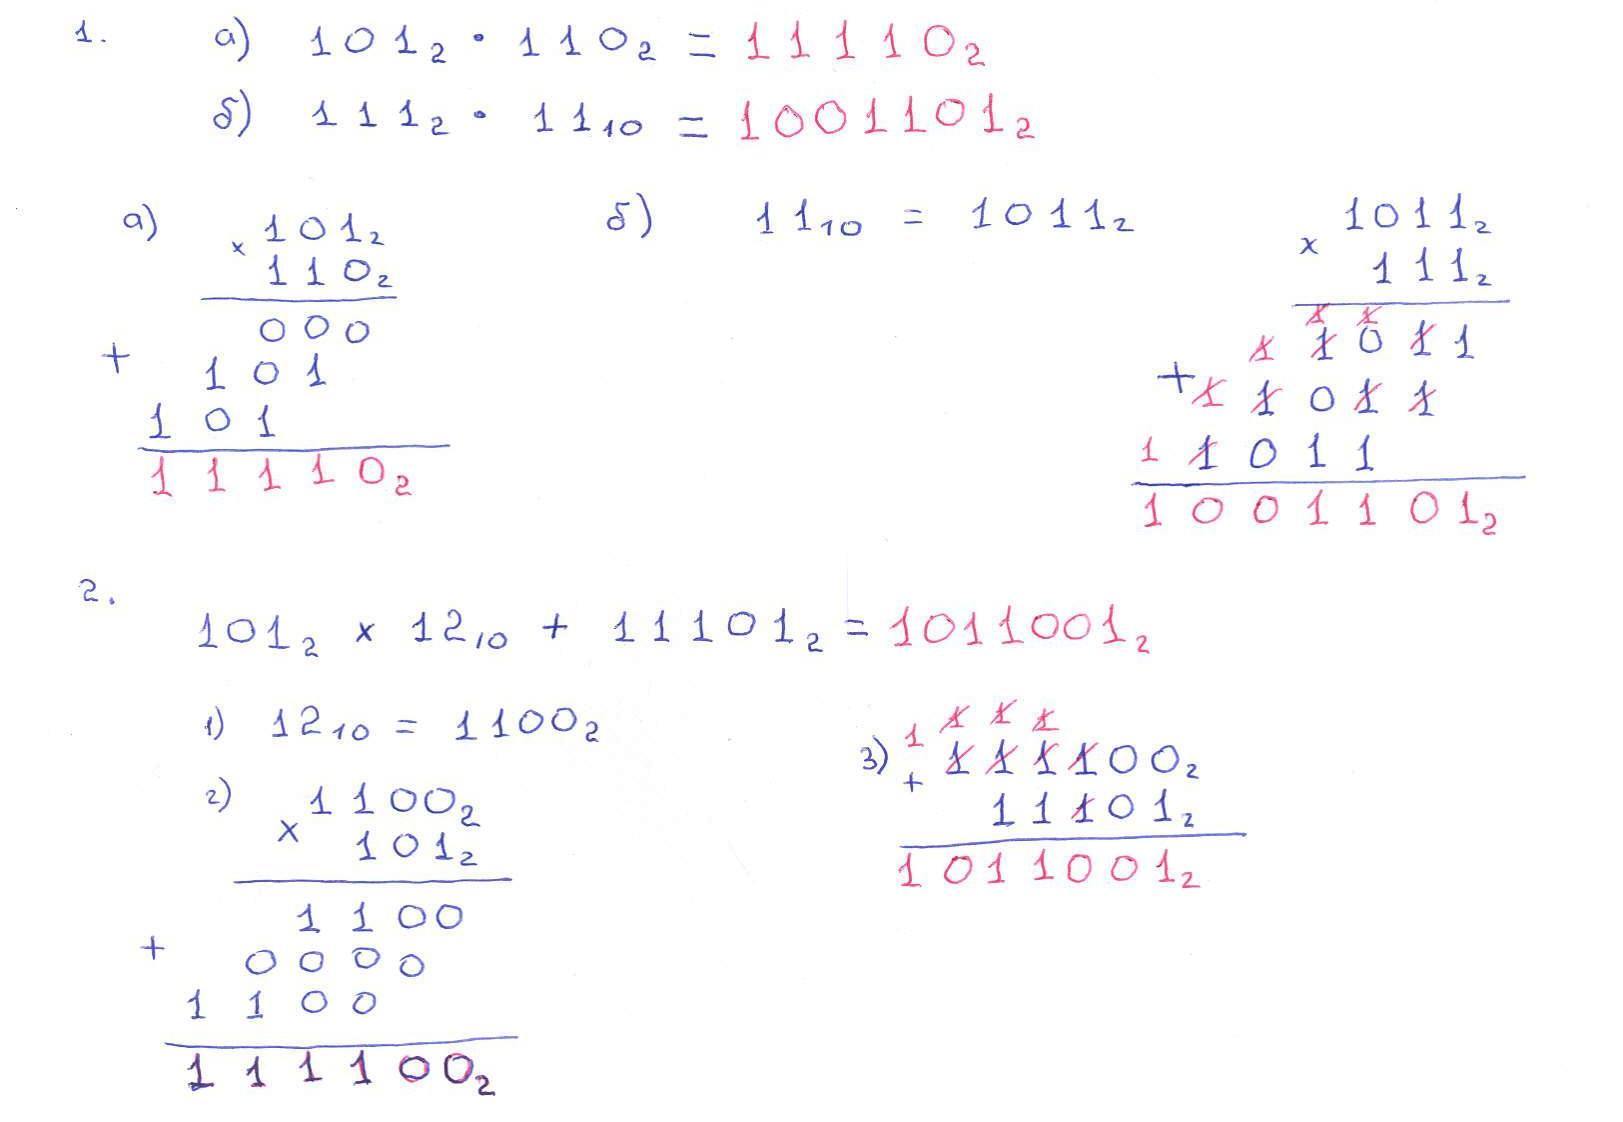 1. а) 101₂ · 110₂ = 11110₂
б) 111₂ · 11₁₀ = 1001101₂
а)
101₂
× 110₂
000
+ 101
101
11110₂
б) 11₁₀ = 1011₂
1011₂
× 111₂
1 1
1 1011
+ 1 1011
1 1011
1001101₂
2.
101₂ × 12₁₀ + 11101₂ = 1011001₂
1) 12₁₀ = 1100₂
2) 1100₂
× 101₂
1100
+ 0000
1100
111100₂
3) 1 1 1 1
111100₂
+ 11101₂
1011001₂